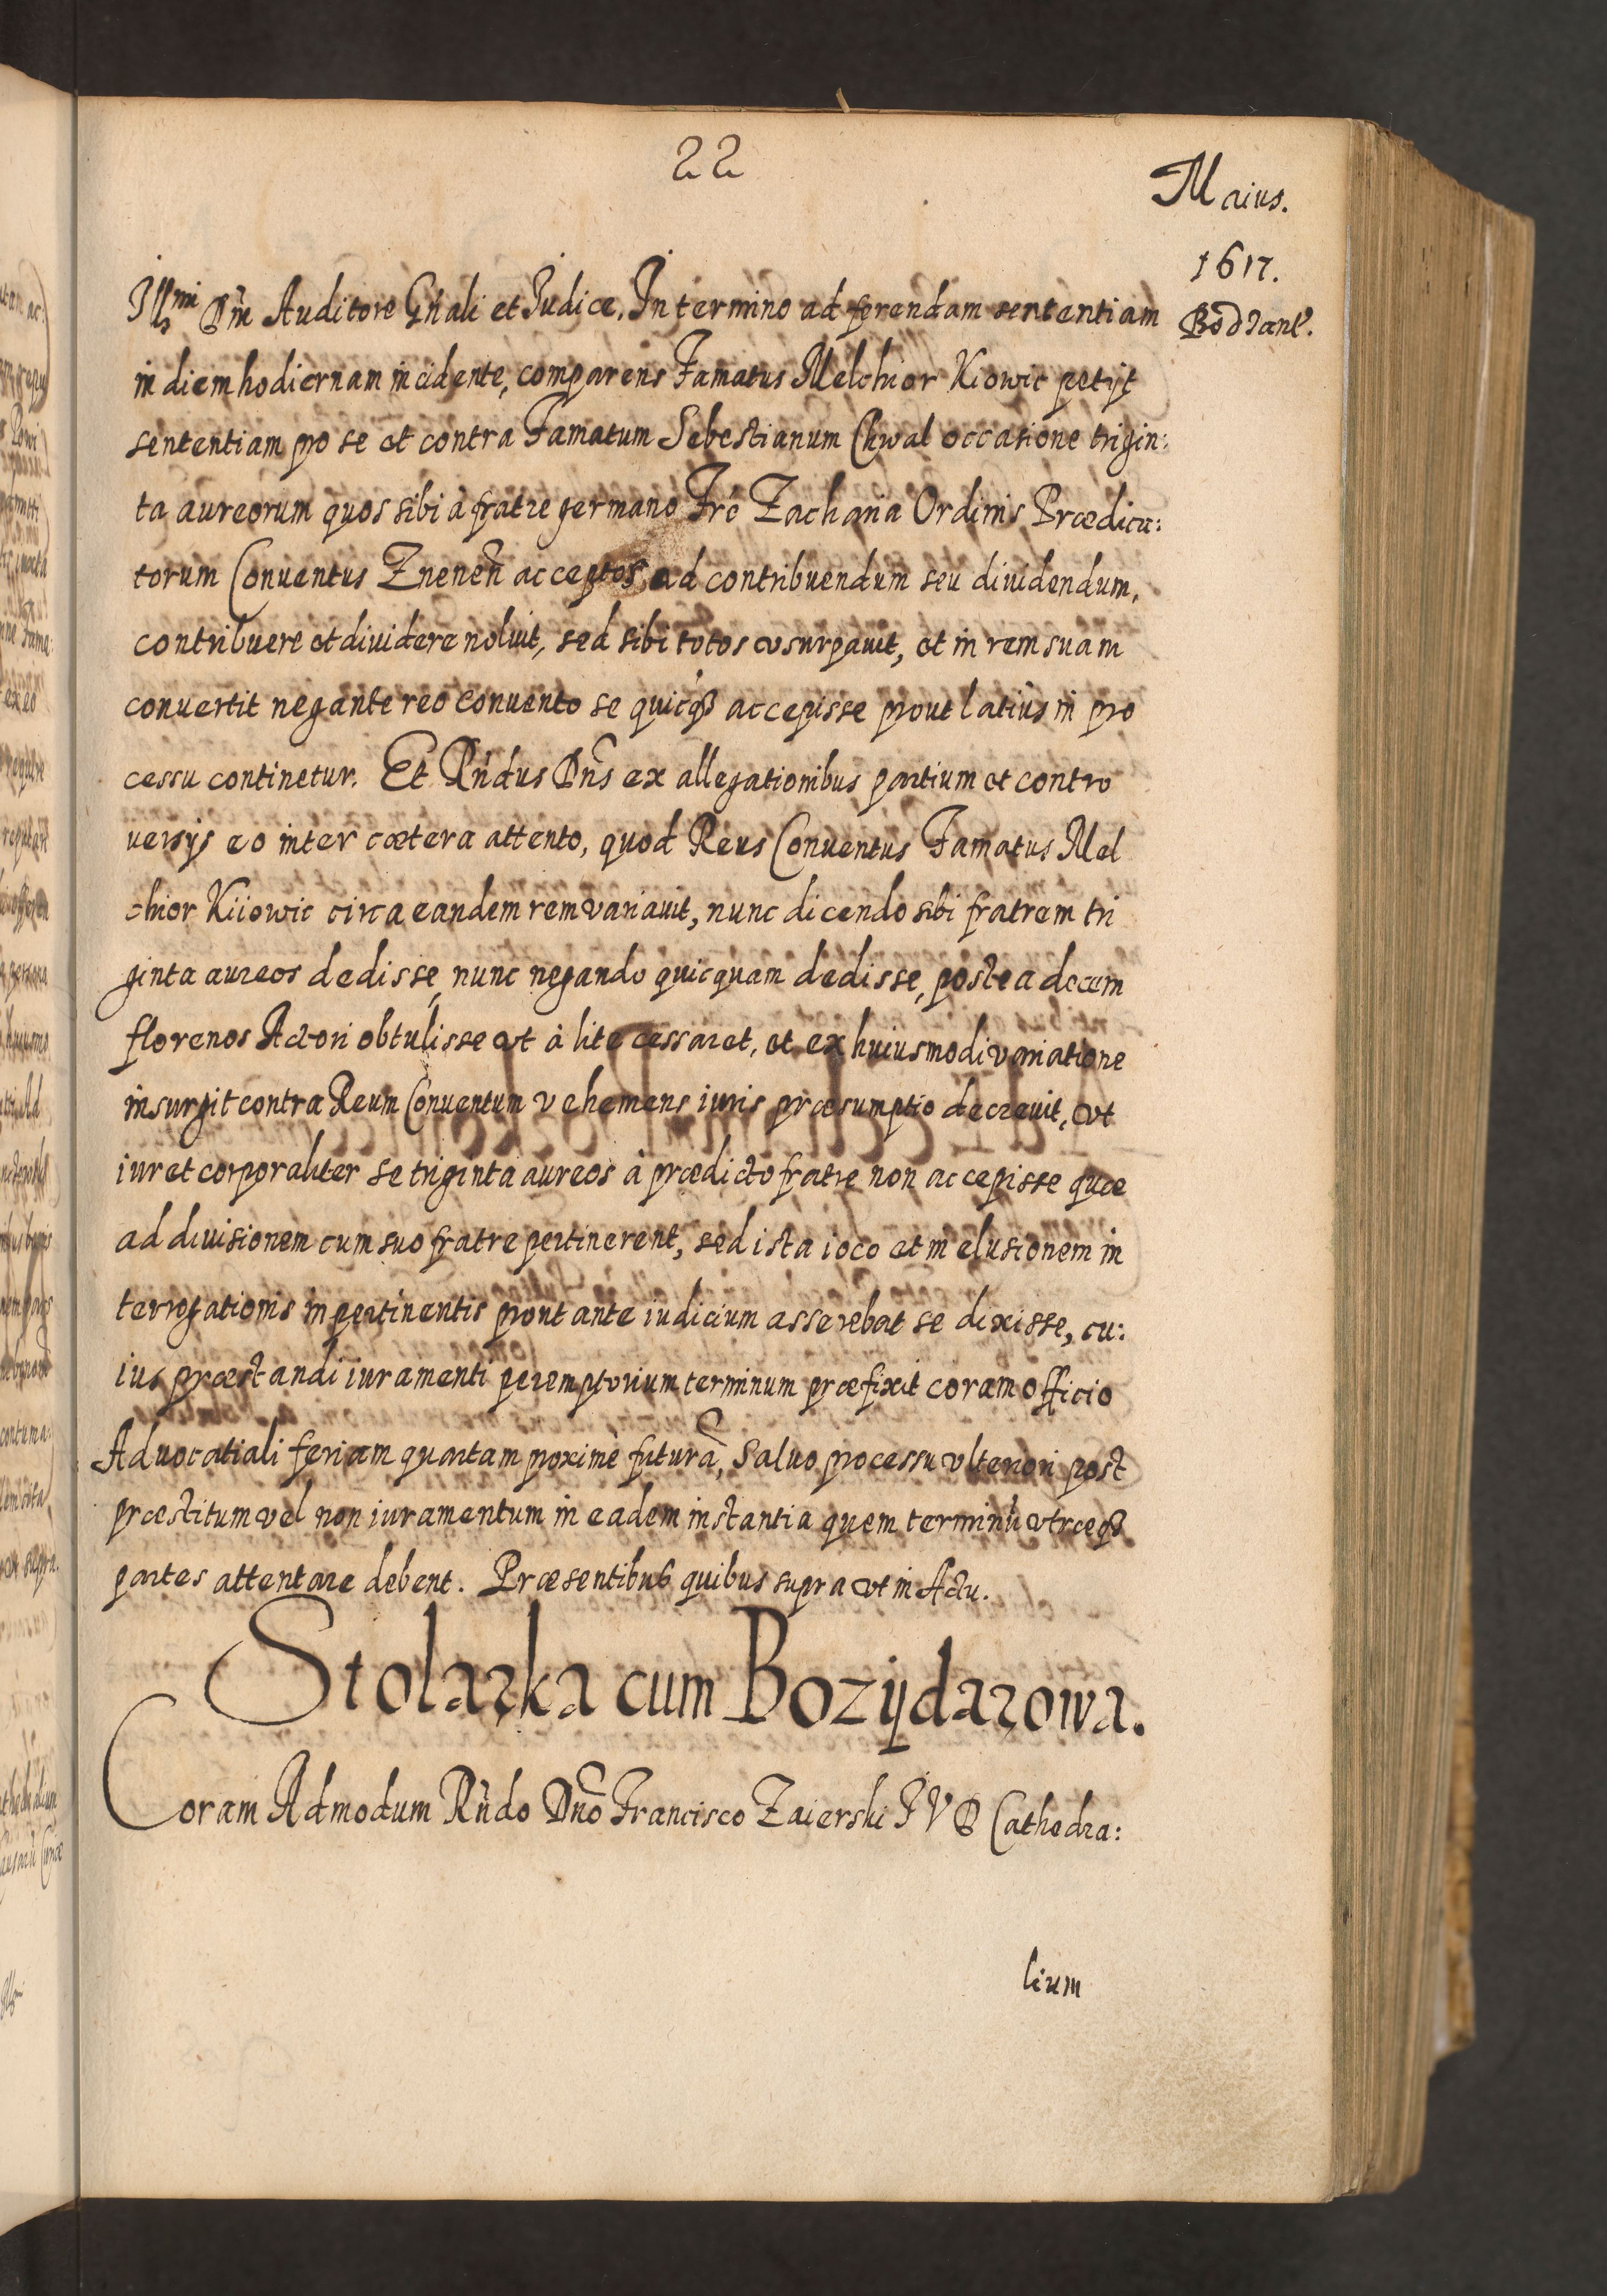 22
Maius.
1617.
Bodzant.
Illmi Dni Auditore Gnali et Judice, In termino ad ferendam sententiam
in diem hodiernam incidente, comparens Famatus Melchior Kiowic petijt
sententiam pro se et contra Famatum Sebestianum Chwal occasione trigin:
ta aureorum quos sibi à fratre germano Fre Zacharia Ordinis Prædica:
torum Conuentus Znenen acceptos ad contribuendum seu diuidendum,
contribuere et diuidere noluit, sed sibi totos vsurpauit, et in rem suam
conuertit negante reo conuento se quicq3 accepisse prout latius in pro
cessu continetur. Et Rndus Dns ex allegationibus partium et contro
uersijs eo inter cætera attento, quod Reus Conuentus Famatus Mel
chior Kiiowic circa eandem rem variauit, nunc dicendo sibi fratrem tri
ginta aureos dedisse, nunc negando quicquam dedisse, postea decem
florenos Actori obtulisse vt à lite cessaret, et ex huiusmodi variatione
insurgit contra Reum Conuentum vehemens iuris præsumptio decreuit, vt
iuret corporaliter se triginta aureos à prædicto fratre non accepisse quæ
ad diuisionem cum suo fratre pertinerent, sed ista ioco et in elusionem in
terrogationis impertinentis prout ante iudicium asserebat se dixisse, cu:
ius præstandi iuramenti peremptorium terminum præfixit coram officio
Aduocatiali feriam quartam proximè futurã, Saluo processu vlteriori post
præstitum vel non iuramentum in eadem instantia quem terminũ vtræq3
partes attentare debent. Præsentibus quibus supra vt in Actu.
Stolarka cum Bozÿdarowa.
Coram Admodum Rndo Dno Francisco Zaierski I V D Cathedra:
lium